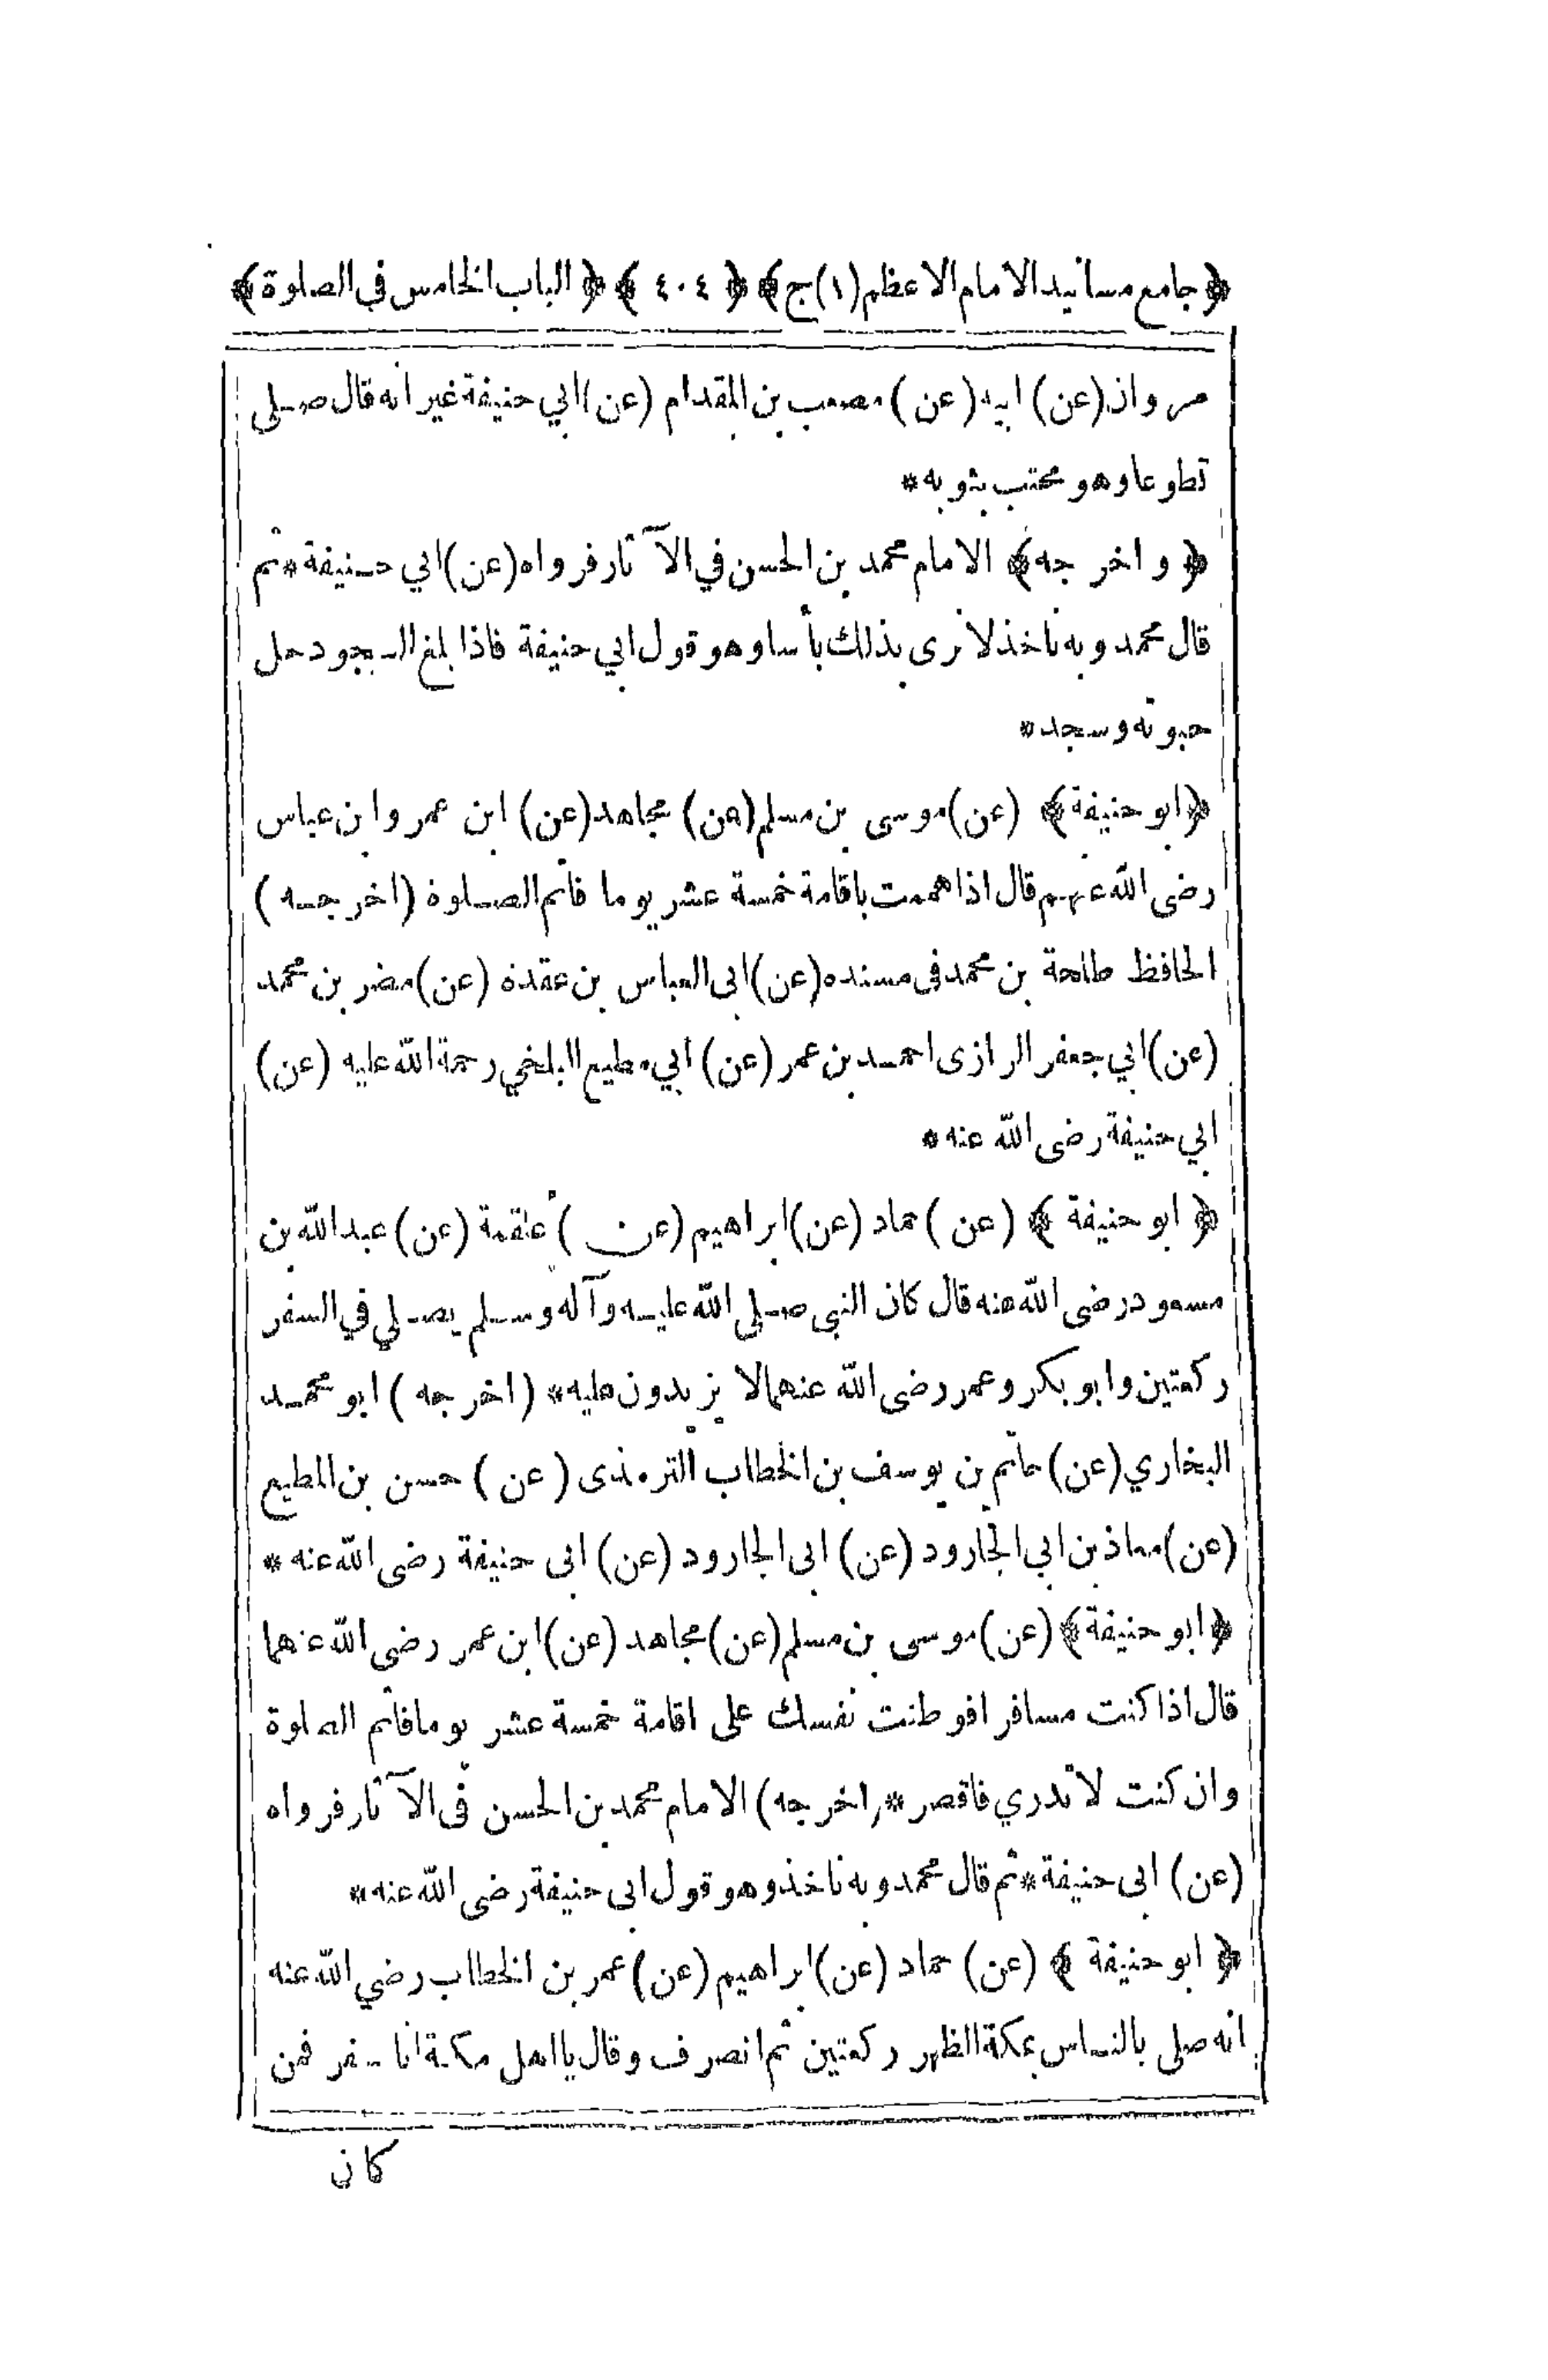 ﴿جامع مسانيد الامام الاعظم (١) ج﴾ ﴿ ٤٠٤ ﴾ ﴿ الباب الخامس في الصلوة ﴾
مروان (عن) ابيه (عن) مصعب بن المقدام (عن) ابي حنيفة غير انه قال صلى
تطوعا وهو محتب بثوبه *
﴿ واخرجه ﴾ الامام محمد بن الحسن في الآثار فرواه (عن) ابي حنيفة * ثم
قال محمد وبه ناخذ لا نرى بذلك بأسا وهو قول ابي حنيفة فاذا بلغ السجود حل
حبوته وسجد *
﴿ابو حنيفة﴾ (عن) موسى بن مسلم (عن) مجاهد (عن) ابن عمر وابن عباس
رضى الله عنهم قال اذا هممت باقامة خمسة عشر يوما فاتم الصلوة (اخرجه)
الحافظ طلحة بن محمد فى مسنده (عن) ابى العباس بن عقدة (عن) مضر بن محمد
(عن) ابي جعفر الرازى احمد بن عمر (عن) ابي مطيع البلخي رحمة الله عليه (عن)
ابي حنيفة رضى الله عنه *
﴿ ابو حنيفة ﴾ (عن) حماد (عن) ابراهيم (عن) علقمة (عن) عبد الله بن
مسعود رضى الله عنه قال كان النبى صلى الله عليه وآله وسلم يصلي في السفر
ركعتين وابو بكر وعمر رضى الله عنهما لا يزيدون عليه * (اخرجه) ابو محمد
البخاري (عن) حاتم بن يوسف بن الخطاب الترمذى (عن) حسن بن المطيع
(عن) معاذ بن ابي الجارود (عن) ابى الجارود (عن) ابى حنيفة رضى الله عنه *
﴿ابو حنيفة﴾ (عن) موسى بن مسلم (عن) مجاهد (عن) ابن عمر رضى الله عنهما
قال اذا كنت مسافرا فوطنت نفسك على اقامة خمسة عشر يوما فاتم الصلوة
وان كنت لا تدري فاقصر * (اخرجه) الامام محمد بن الحسن فى الآثار فرواه
(عن) ابى حنيفة * ثم قال محمد وبه ناخذ وهو قول ابى حنيفة رضى الله عنه *
﴿ ابو حنيفة ﴾ (عن) حماد (عن) ابراهيم (عن) عمر بن الخطاب رضي الله عنه
انه صلى بالناس بمكة الظهر ركعتين ثم انصرف وقال يا اهل مكة انا سفر فمن
كان